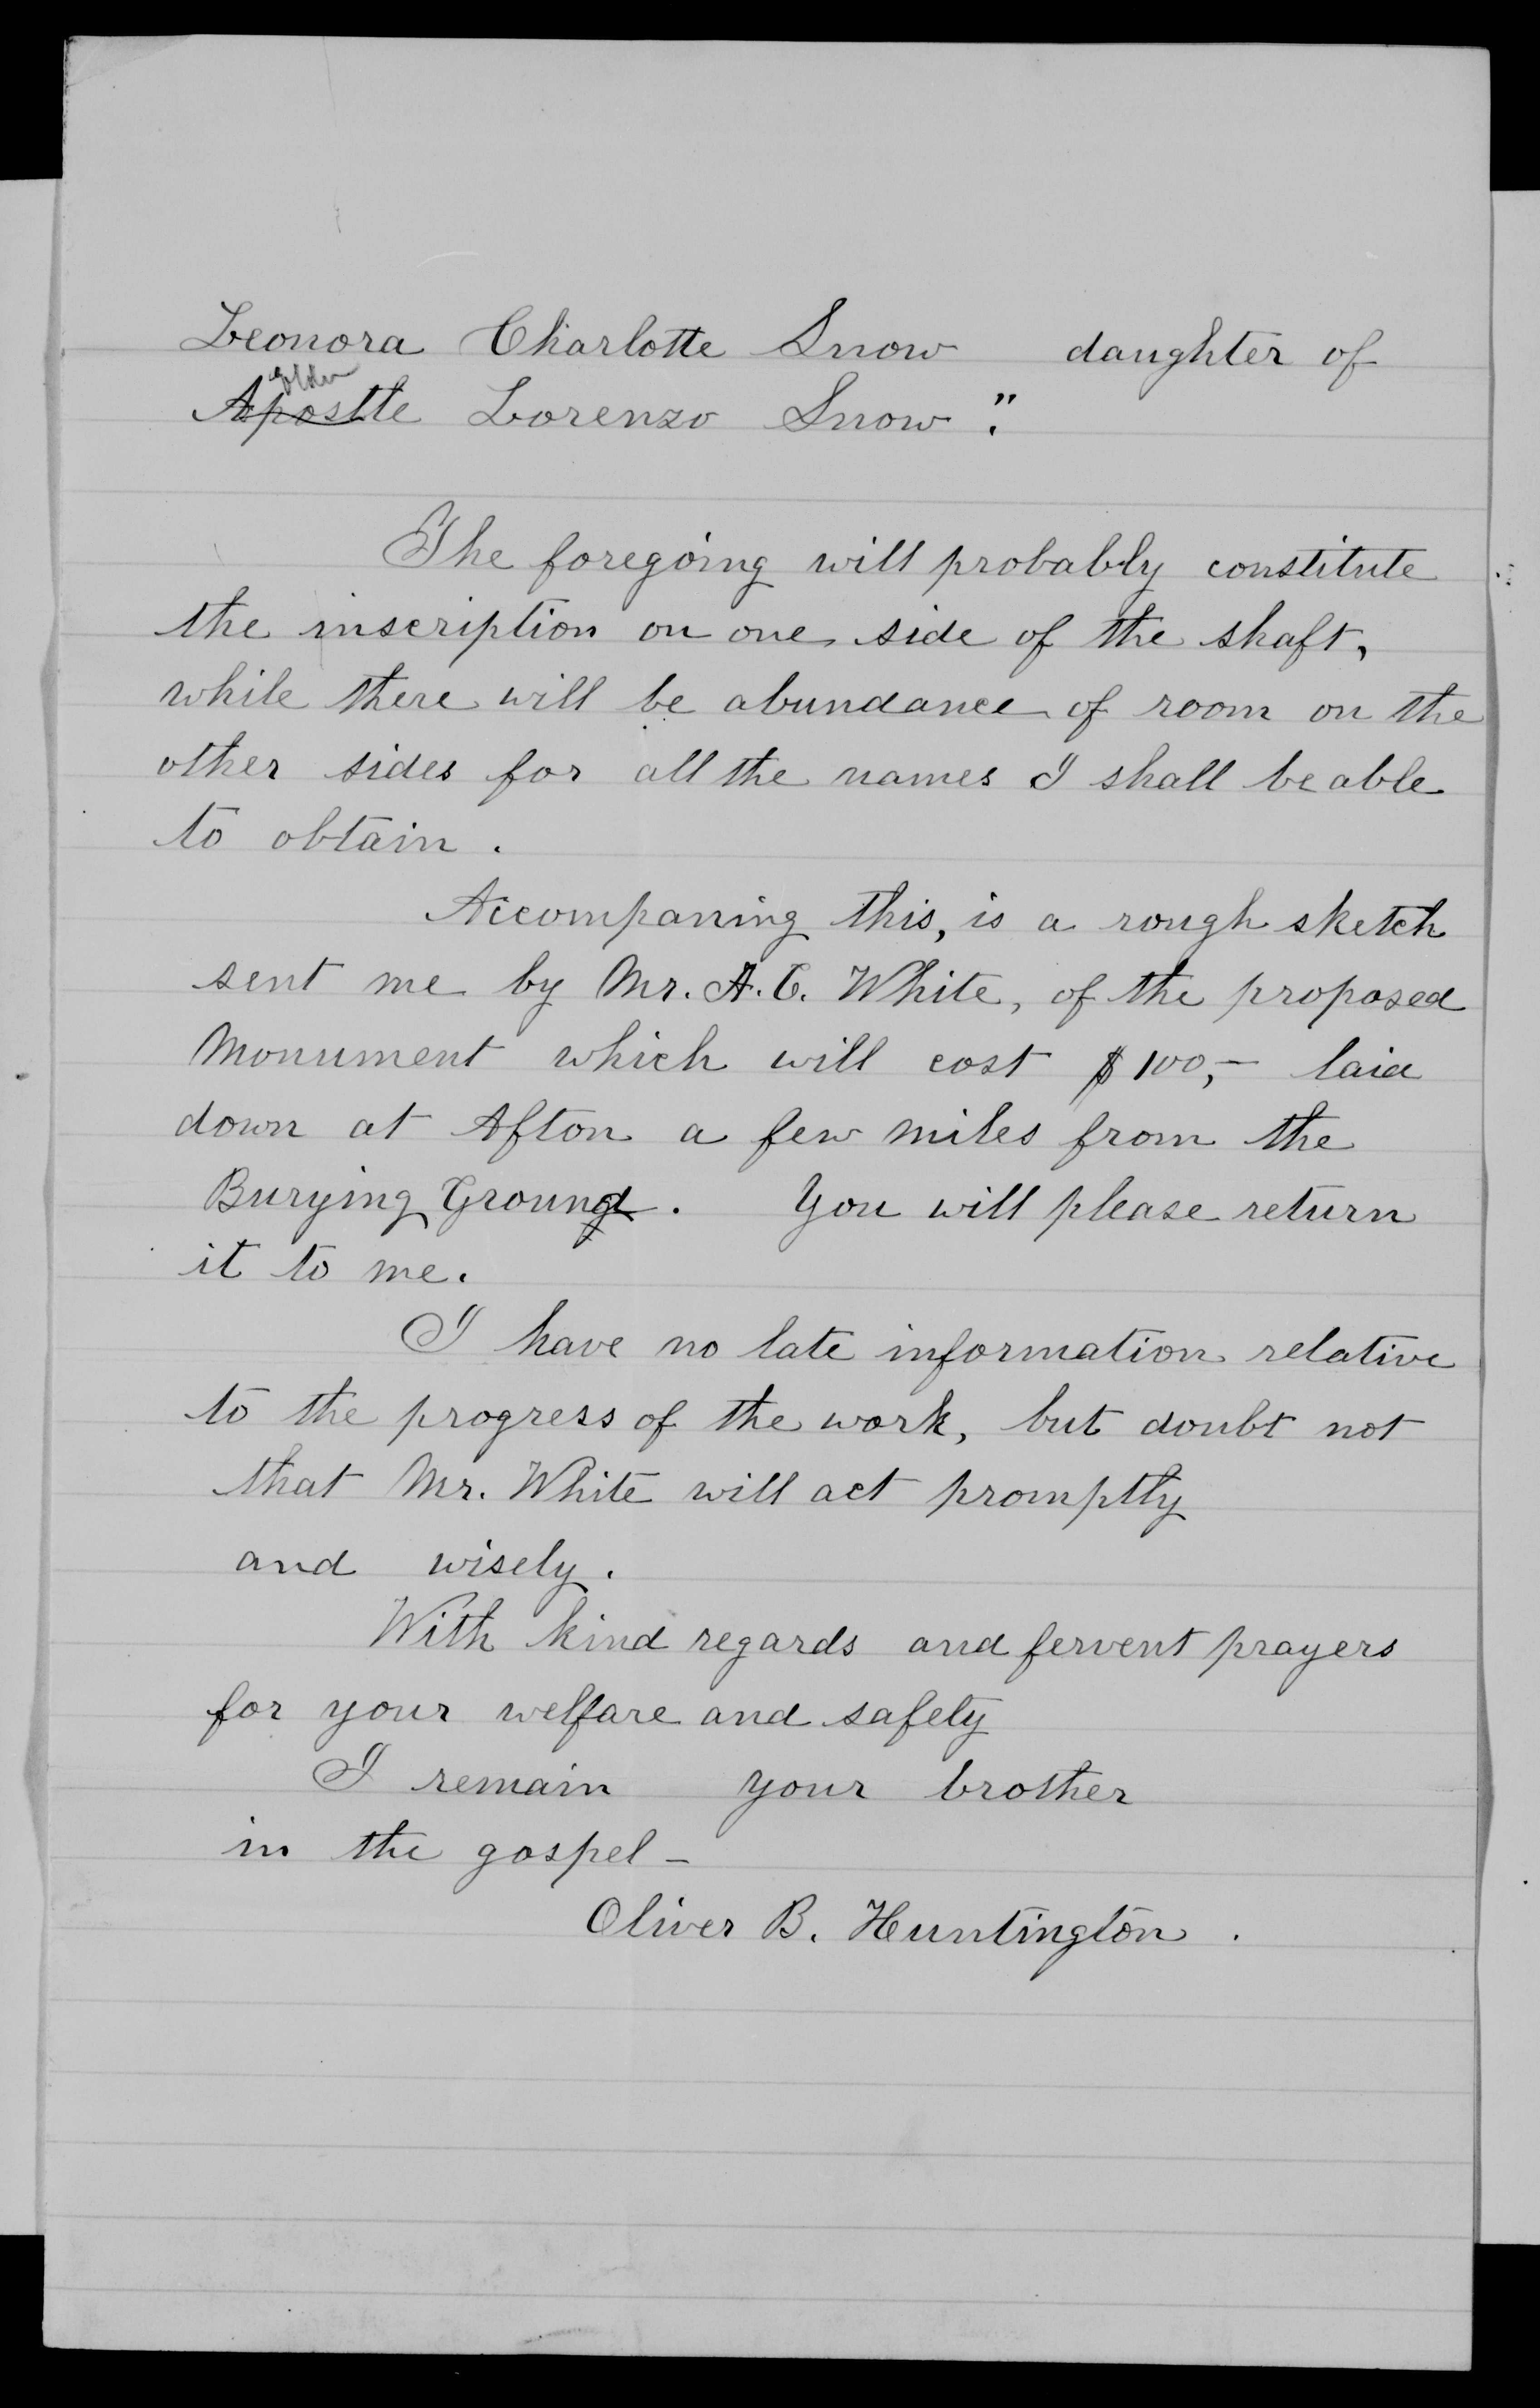 Leonora Charlotte Snow daughter of
Elder
Apostle Lorenzo Snow."
The foregoing will probably constitute
the inscription on one side of the shaft,
while there will be abundance of room on the
other sides for all the names I shall be able
to obtain.
Accompaning this, is a rough sketch
sent me by Mr. A. C. White, of the proposed
Monument which will cost $100,- laid
down at Afton a few miles from the
Burying Ground. You will please return
it to me.
I have no late information relative
to the progress of the work, but doubt not
that Mr. White will act promptly
and wisely.
With kind regards and fervent prayers
for your welfare and safety
I remain your brother
in the gospel -
Oliver B. Huntington.